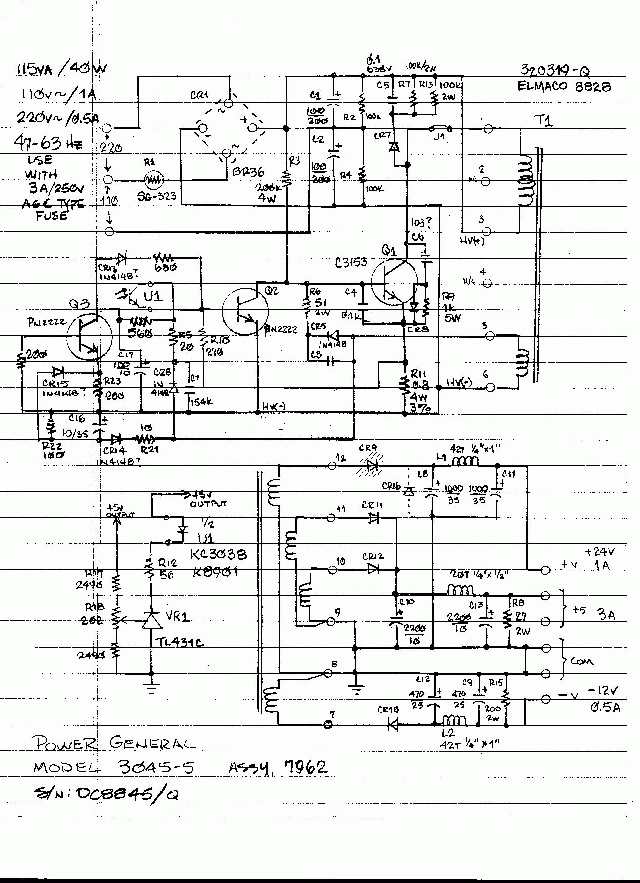 115VA / 40W
110V~ / 1A
220V~ / 0.5A
47-63 Hz
USE
WITH
3A/250V
AGC TYPE
FUSE
220
110
R1
SG-323
CR1
BR36
R3
4W
C1
100
200
R2
100K
C2
100
200
R4
100K
0.1
630V
C5
R7
R13
100K
2W
CR7
J1
320319-Q
ELMACO 8828
T1
2
3
HV(-)
4
5
6
HV(-)
Q1
C3153
103?
C6
R9
1K
5W
CR8
R6
51
2W
C4
CR5
1N4148
C3
R11
0.8
4W
3%
CR13
1N4148?
680
U1
Q3
PN2222
560
Q2
PN2222
R5
20
R10
210
200
C17
C28
C7
154K
1N
4148
HV(-)
CR15
1N4148?
R23
200
C16
10/35
R22
100
CR14
1N4148?
10
R21
12
CR9
CR16
L1
42T 1/4"x1"
C8
1000
35
C11
1000
35
11
CR11
10
CR12
9
20T 1/4"x1/2"
C10
2200
10
C13
2200
10
R8
27
2W
+24V
+V 1A
+5 3A
COM
8
C12
470
25
C9
470
25
R15
200
2W
-V -12V
0.5A
7
CR10
L2
42T 1/4"x1"
+5V
OUTPUT
+5V
OUTPUT
1/2
U1
KC3038
K8901
R12
56
R17
2490
R18
202
2490
VR1
TL431C
POWER GENERAL
MODEL 3045-5 ASSY, 7962
S/N: DC8845/Q